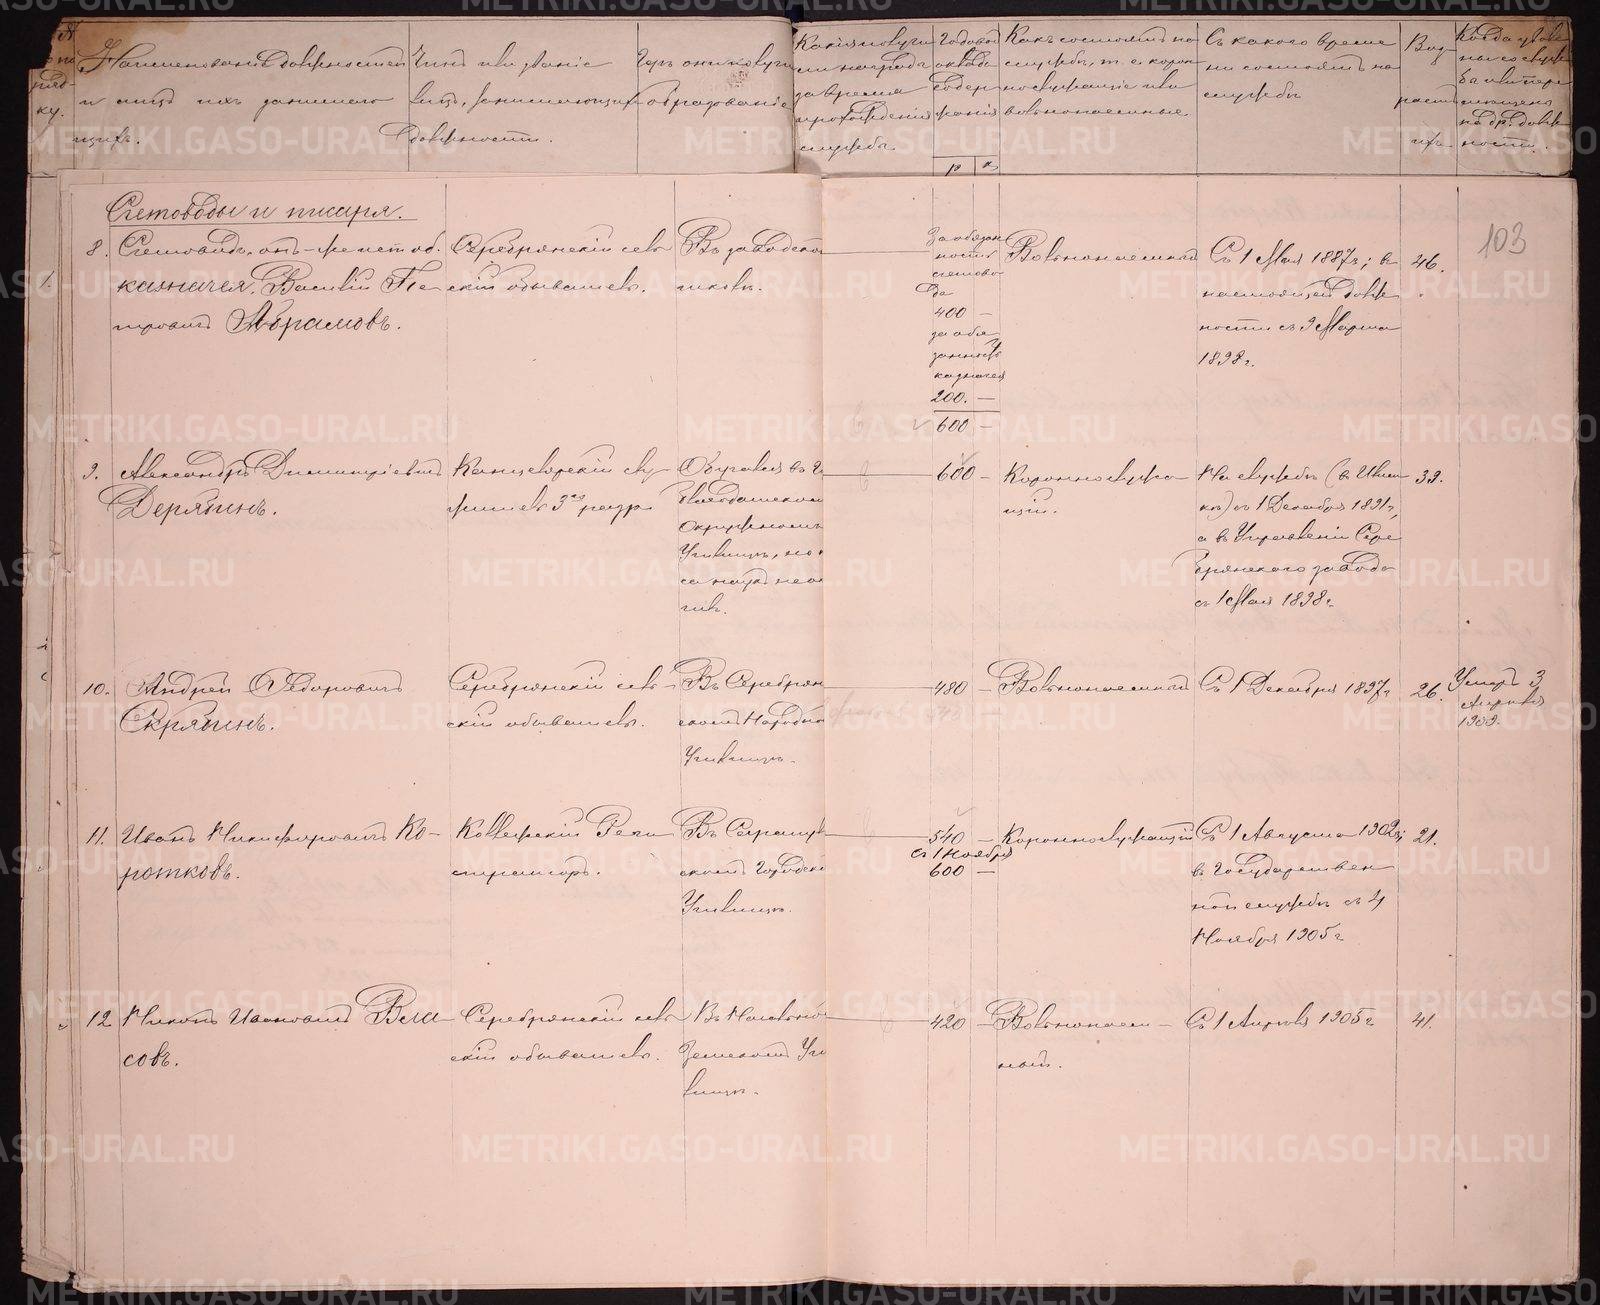 №
по
ряд-
ку.
Наименованіе должностей
и лицъ ихъ занимаю-
щихъ.
Чинъ или званіе
лицъ, занимающихъ
должности.
Гдѣ они получи
образованіе
Какія получи
ли награды
за время
прохожденія
службы.
Годовой
окладъ
содер
жанія
р к
Какъ состоятъ на
службѣ, т. е. корон
нослужащіе или
вольнонаемные.
Съ какого време
ни состоятъ на
службѣ
Воз
растъ
ихъ
Когда уволе
ны со служ
бы или пере
мѣщены
на др. долж
ности.
103
Счетоводы и писаря.
8. Счетоводъ, онъ-же исп. об.
казначея, Василій Пе
тровичъ Абрамовъ.
Серебрянскій сель
скій обыватель.
Въ заводско
школѣ.
За обязан
ность
счетово
да
400 —
за обя
занность
казначея
200. —
600 —
Вольнонаемный
Съ 1 Мая 1887 г.; въ
настоящей долж
ности съ 9 Марта
1898 г.
46.
9. Александръ Димитріевичъ
Дерябинъ.
Канцелярскій слу
житель 3го разр
Обучался въ
Благодатском
Окружномъ
Училищѣ, но к
са наукъ не ок
чилъ.
600 —
Коронно служа
щій.
На службѣ (въ Ижев
кѣ) съ 1 Декабря 1891 г,
а въ Управленіи Сере
брянскаго завода
съ 1 Мая 1898 г.
39.
10. Андрей Ѳедоровичъ
Скрябинъ.
Серебрянскій сель
скій обыватель.
Въ Серебрян
скомъ Народно
Училищѣ.
480 —
Вольнонаемный
Съ 1 Декабря 1897 г
26.
Умеръ 3
Апрѣля
1909.
11. Иванъ Никифоровичъ Ко-
ротковъ.
Коллежскій Реги
страторъ.
Въ Сарапул
скомъ Городско
Училищѣ.
540 —
съ 1 Ноября
600 —
Короннослужащій
Съ 1 Августа 1902 г;
въ Государствен
ной службѣ съ 4
Ноября 1905 г
21.
12 Никонъ Ивановичъ Вла
совъ.
Серебрянскій сель
скій обыватель.
Въ Начально
Земскомъ Учи
лищѣ.
420 —
Вольнонаем —
ный.
Съ 1 Апрѣля 1905 г
41.
METRIKI.GASO-URAL.RU